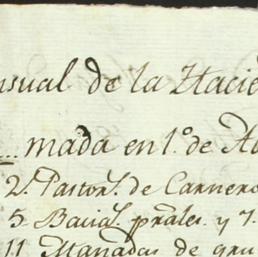 nsual de la Hacie
mada en 1.º de A
2. Pastor.s de Carnero
5 Bacia.s prales. y 7.
11 Manadas de